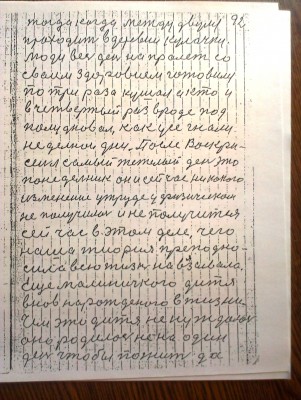 92
тогда когда между двумя
проходит в деревни кулочки.
люди вес ден на пролет со
своим здоровием готовили
по три раза кушал и кто и
в четвертый раз вроде под
полудновал, как уже гнали
неделнои дни, После Воскри-
сеня самый тежелай ден это
понеделник они сейчас никокого
изменение у труде, у физическом
не получилос и не получится
сей час в этом деле, чего
наша тиория преподно-
сила всю жизн называвала,
еще маленичкого дитя
внов нарожденого в жизни
Чем это дитя не нуждалос
оно родилос не на один
ден чтобы пожит да